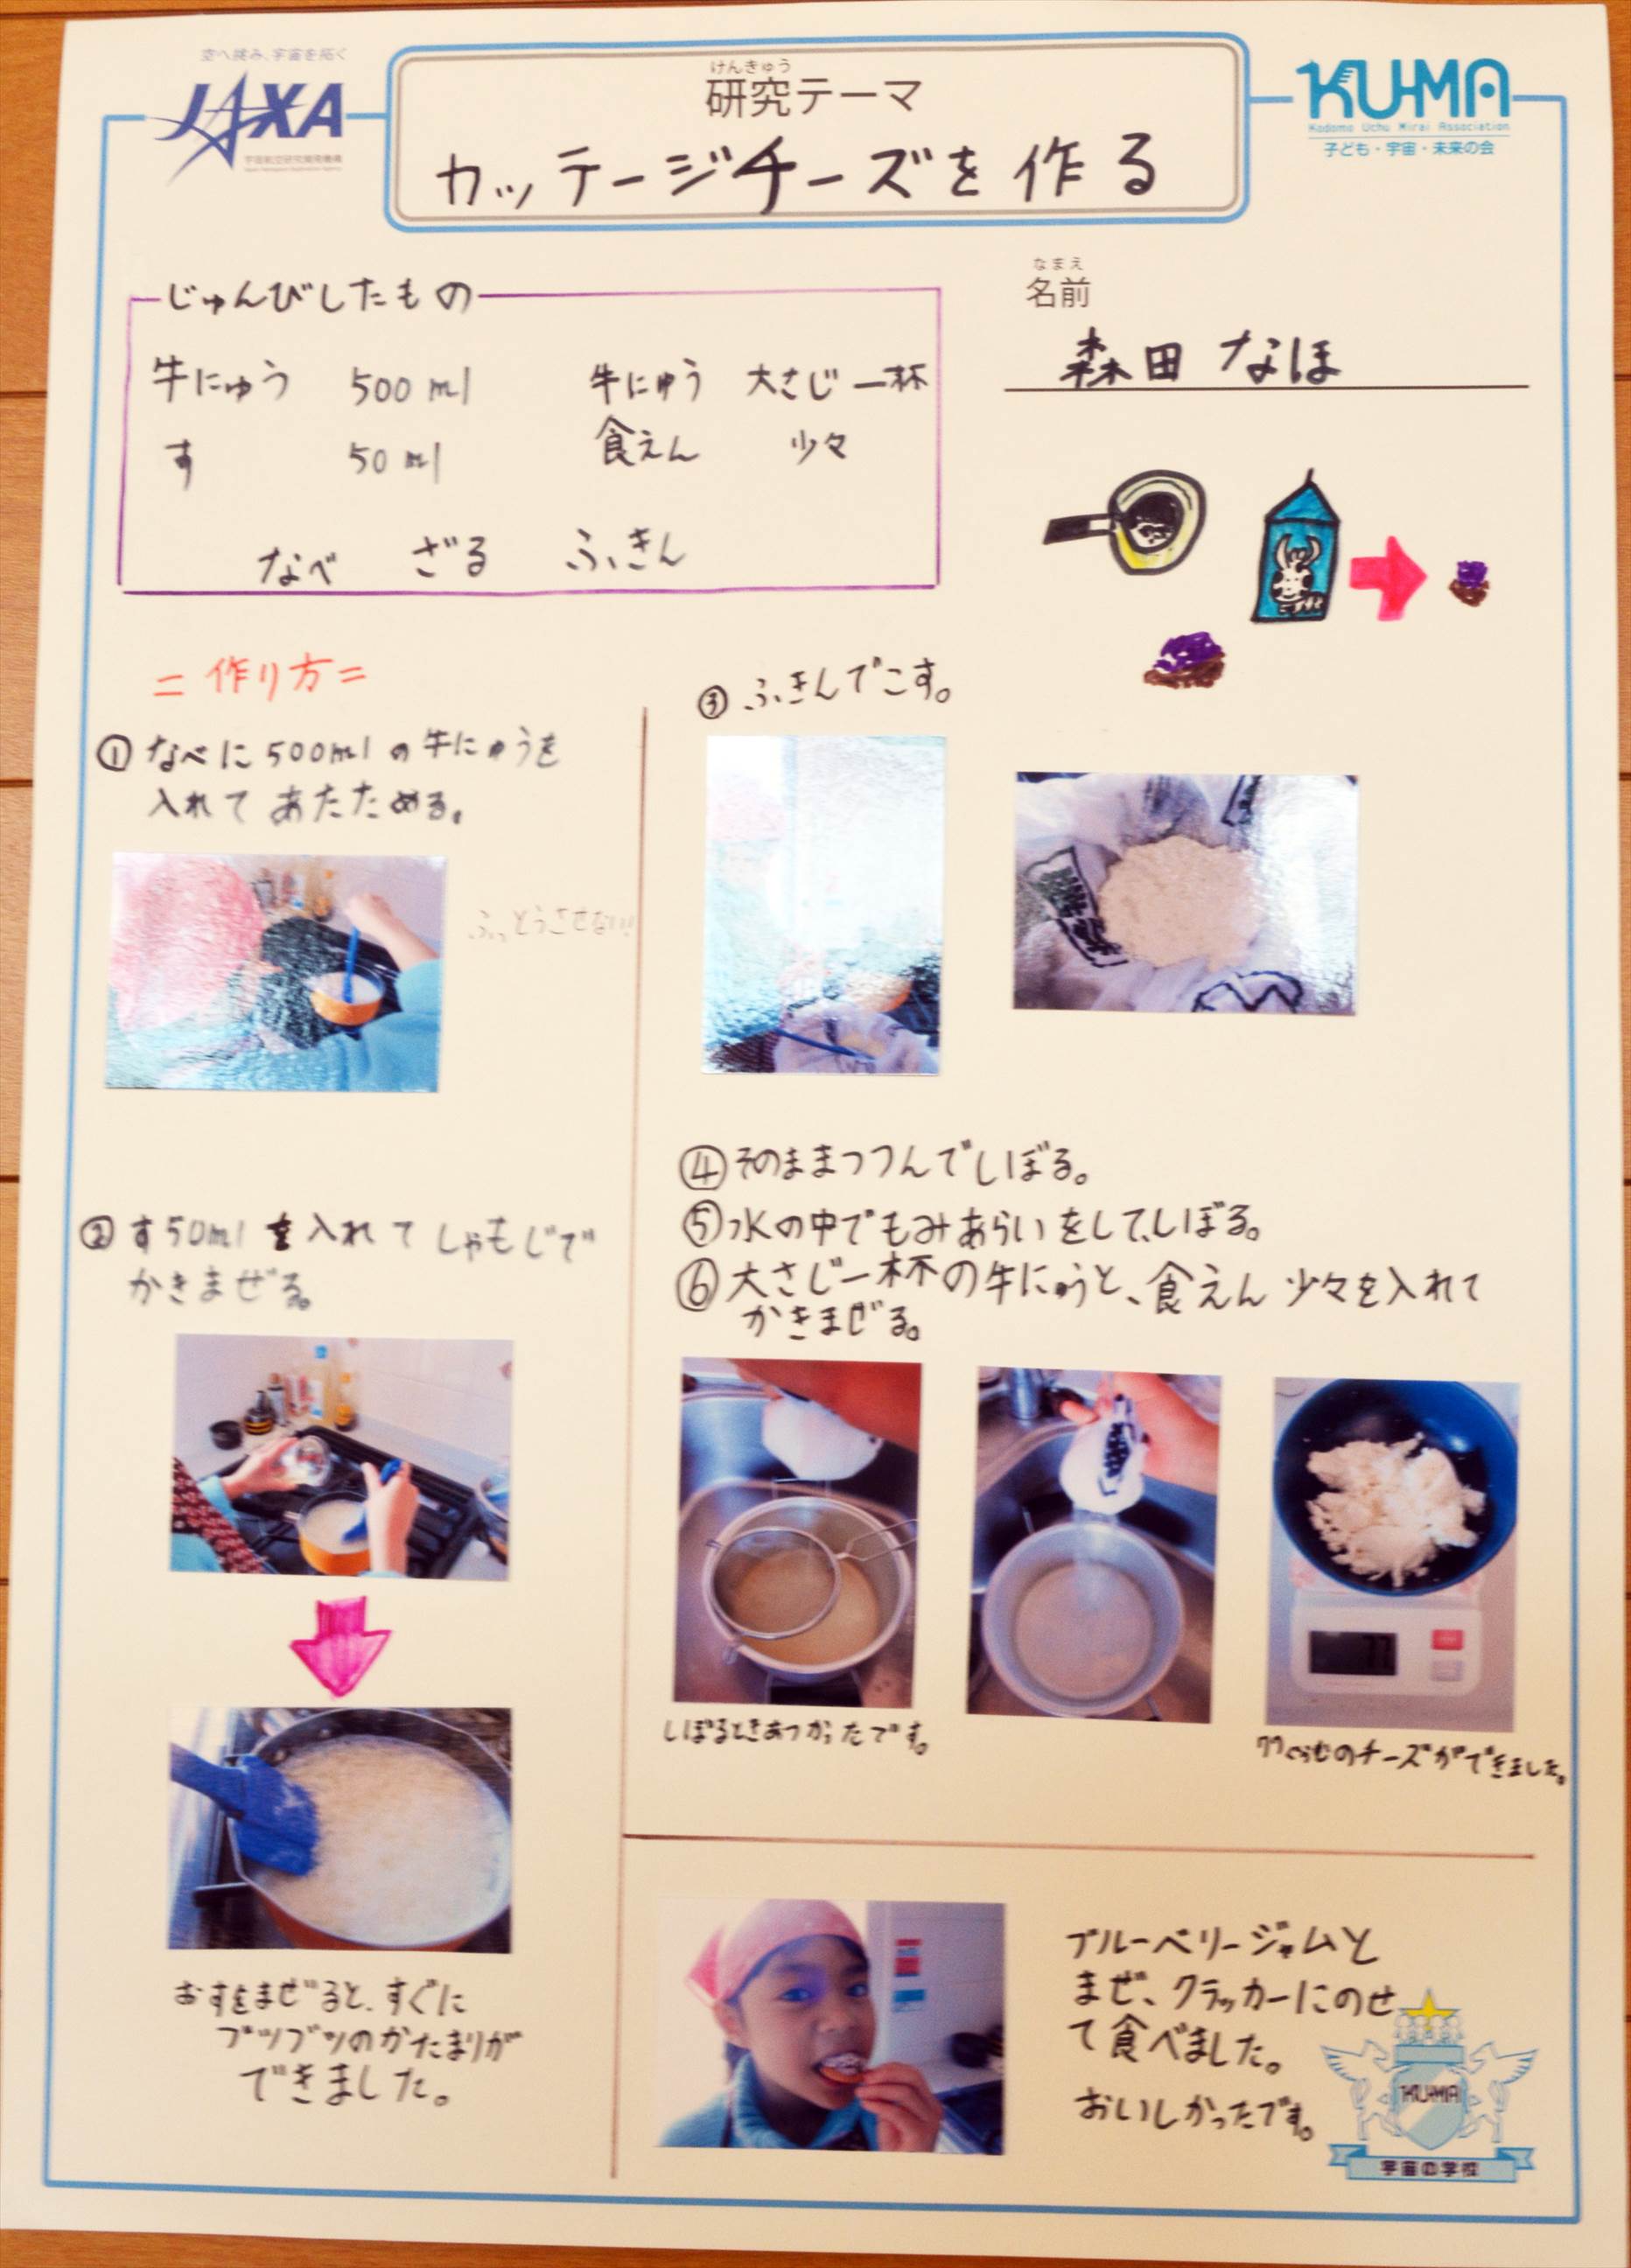 空へ挑み、宇宙を拓く
JAXA
宇宙航空研究開発機構
けんきゅう
研究テーマ
カッテージチーズを作る
KU-MA
Kodomo Uchu Mirai Association
子ども・宇宙・未来の会
じゅんびしたもの
牛にゅう 500ml 牛にゅう 大さじ一杯
す 50ml 食えん 少々
なべ ざる ふきん
なまえ
名前
森田 なほ
=作り方=
①なべに500mlの牛にゅうを
入れてあたためる。
ふっとうさせない!!
②す50mlを入れてしゃもじで
かきまぜる。
おすをまぜると、すぐに
ブツブツのかたまりが
できました。
③ふきんでこす。
④そのままつつんでしぼる。
⑤水の中でもみあらいをして、しぼる。
⑥大さじ一杯の牛にゅうと、食えん少々を入れて
かきまぜる。
77
しぼるときあつかったです。
77ぐらむのチーズができました。
ブルーベリージャムと
まぜ、クラッカーにのせ
て食べました。
おいしかったです。
KU-MA
宇宙の学校